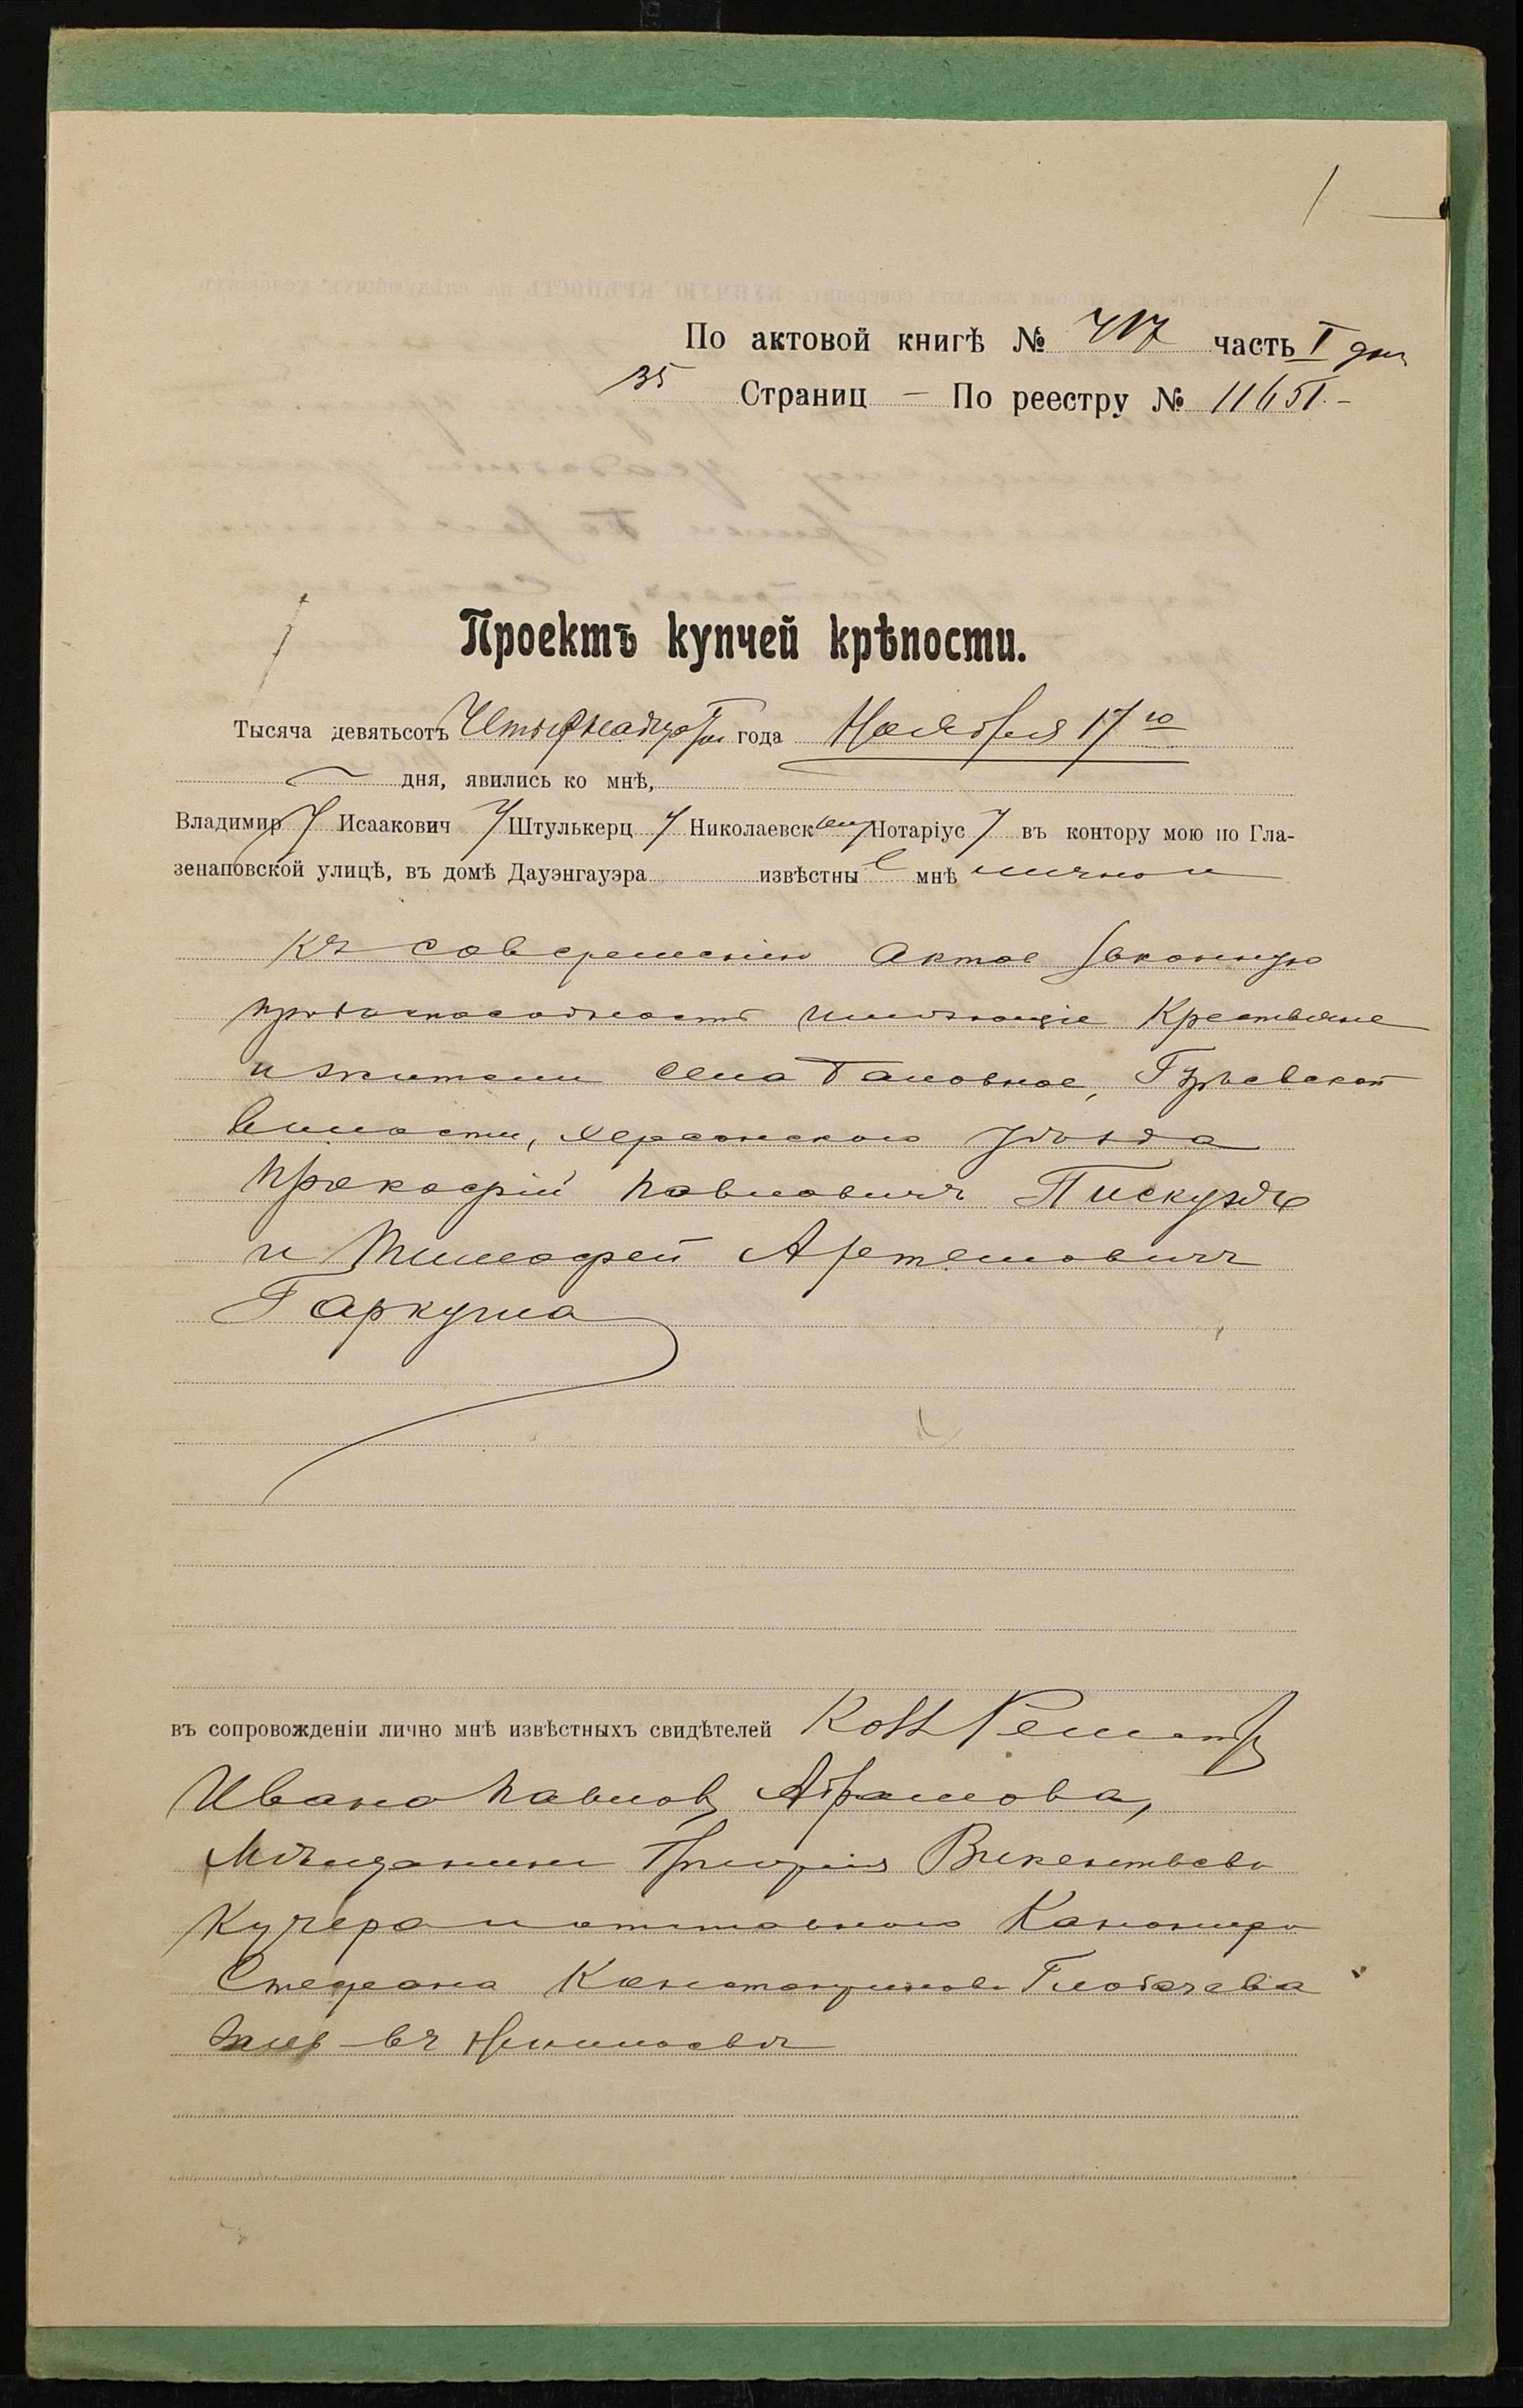 По актовой книгѣ № 717 часть I
35 Страниц — По реестру № 11651.-
Проектъ купчей крѣпости.
Тысяча девятьсотъ Четырнадцатаго года Ноября 17го
дня, явились ко мнѣ,
Владимир Исаакович Штулькерц Николаевск Нотаріус въ контору мою по Гла-
зенаповской улицѣ, въ домѣ Дауэнгауэра извѣстные мнѣ лично и
къ совершенію актов законную
правоспособность имѣющіе Крестьяне
и жители села Баловное, Гурьевской
волости, Херсонскаго уѣзда
Прокофій Павловичъ Пискунъ
и Тимофей Артемовичъ
Гаркуша
въ сопровожденіи лично мнѣ извѣстныхъ свидѣтелей
Ивана Павлов Абрамова,
Мѣщанина Григорія Викентьева
Кучера и отставного Канонира
Стефана Константинова Глобачева
жив въ Николаевѣ